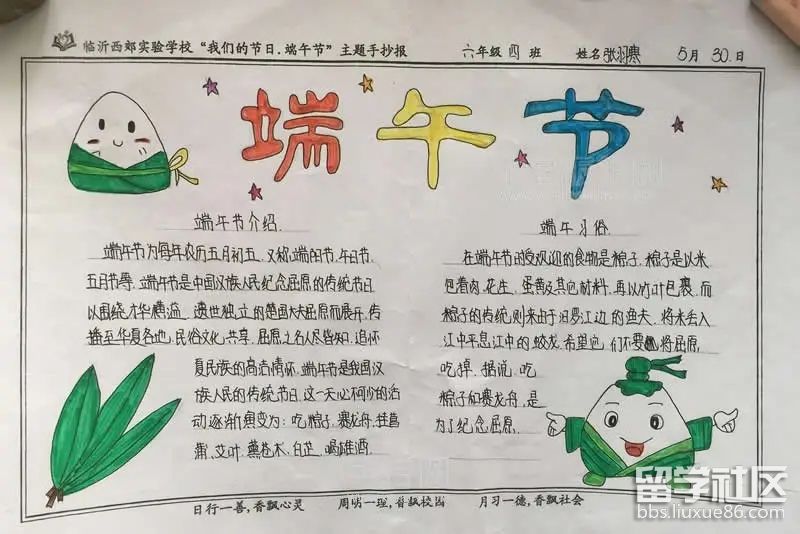 临沂西郊实验学校“我们的节日.端午节”主题手抄报 六年级 四 班 姓名 张羽 5月 30.日
端午节
端午节介绍
端午节为每年农历五月初五. 又称端阳节.午日节.
五月节等. 端午节是中国汉族人民纪念屈原的传统节日.
以围绕才华横溢. 遗世独立的楚国大夫屈原而展开,传
播至华夏各地.民俗文化共享.屈原之名人尽皆知.追怀
夏民族的高洁情怀. 端午节是我国汉
族人民的传统节日.这一天必不可少的活
动逐渐演变为:吃粽子.赛龙舟.挂菖
蒲.艾叶.薰苍术.白芷.喝雄酒.
端午习俗
在端午节日受欢迎的食物是粽子.粽子是以米
包着肉.花生. 蛋黄及其他材料.再以竹叶包裹.而
粽子的传统.则来由于汨罗江边的渔夫. 将米丢入
江中平息江中的蛟龙.希望他们不要将屈原
吃掉. 据说.吃
粽子和赛龙舟.是
为了纪念屈原.
日行一善,香飘心灵 周明一理,香飘校园 月习一德,香飘社会
留学社区
bbs.liuxue86.com